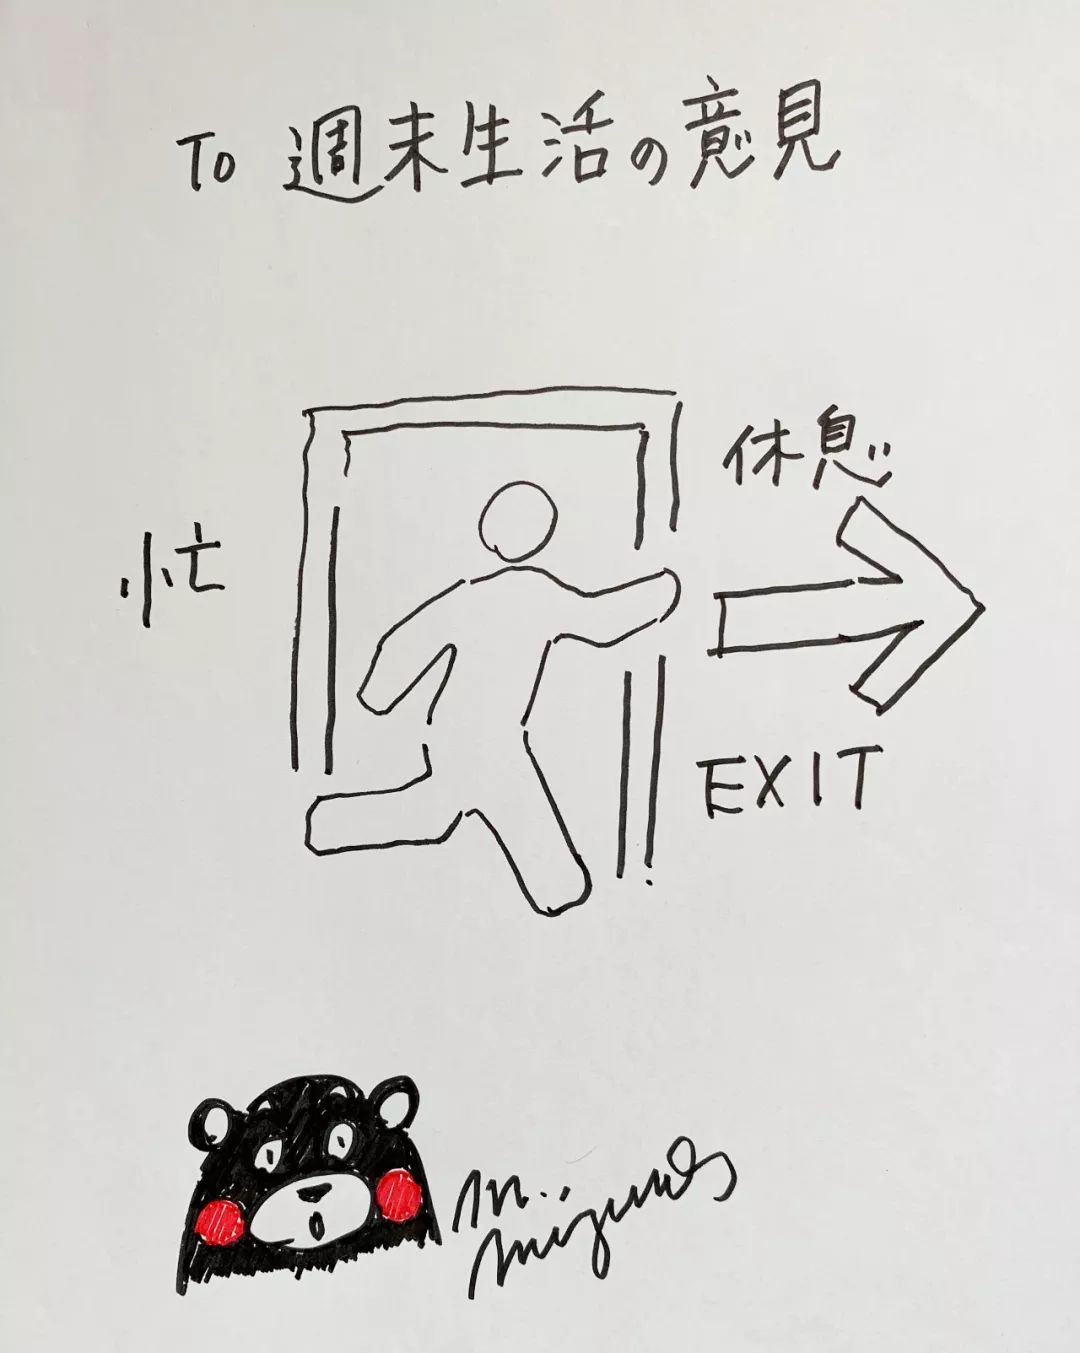 To 週末生活の意見
休息
忙
EXIT
M. Mizuno